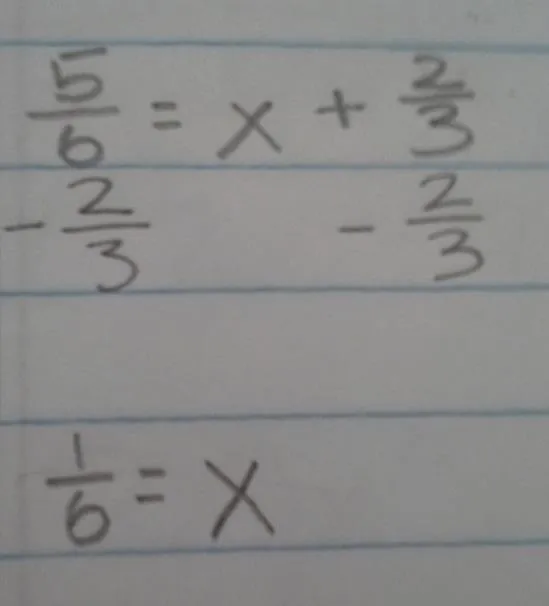 5/6 = x + 2/3
- 2/3 - 2/3
1/6 = x